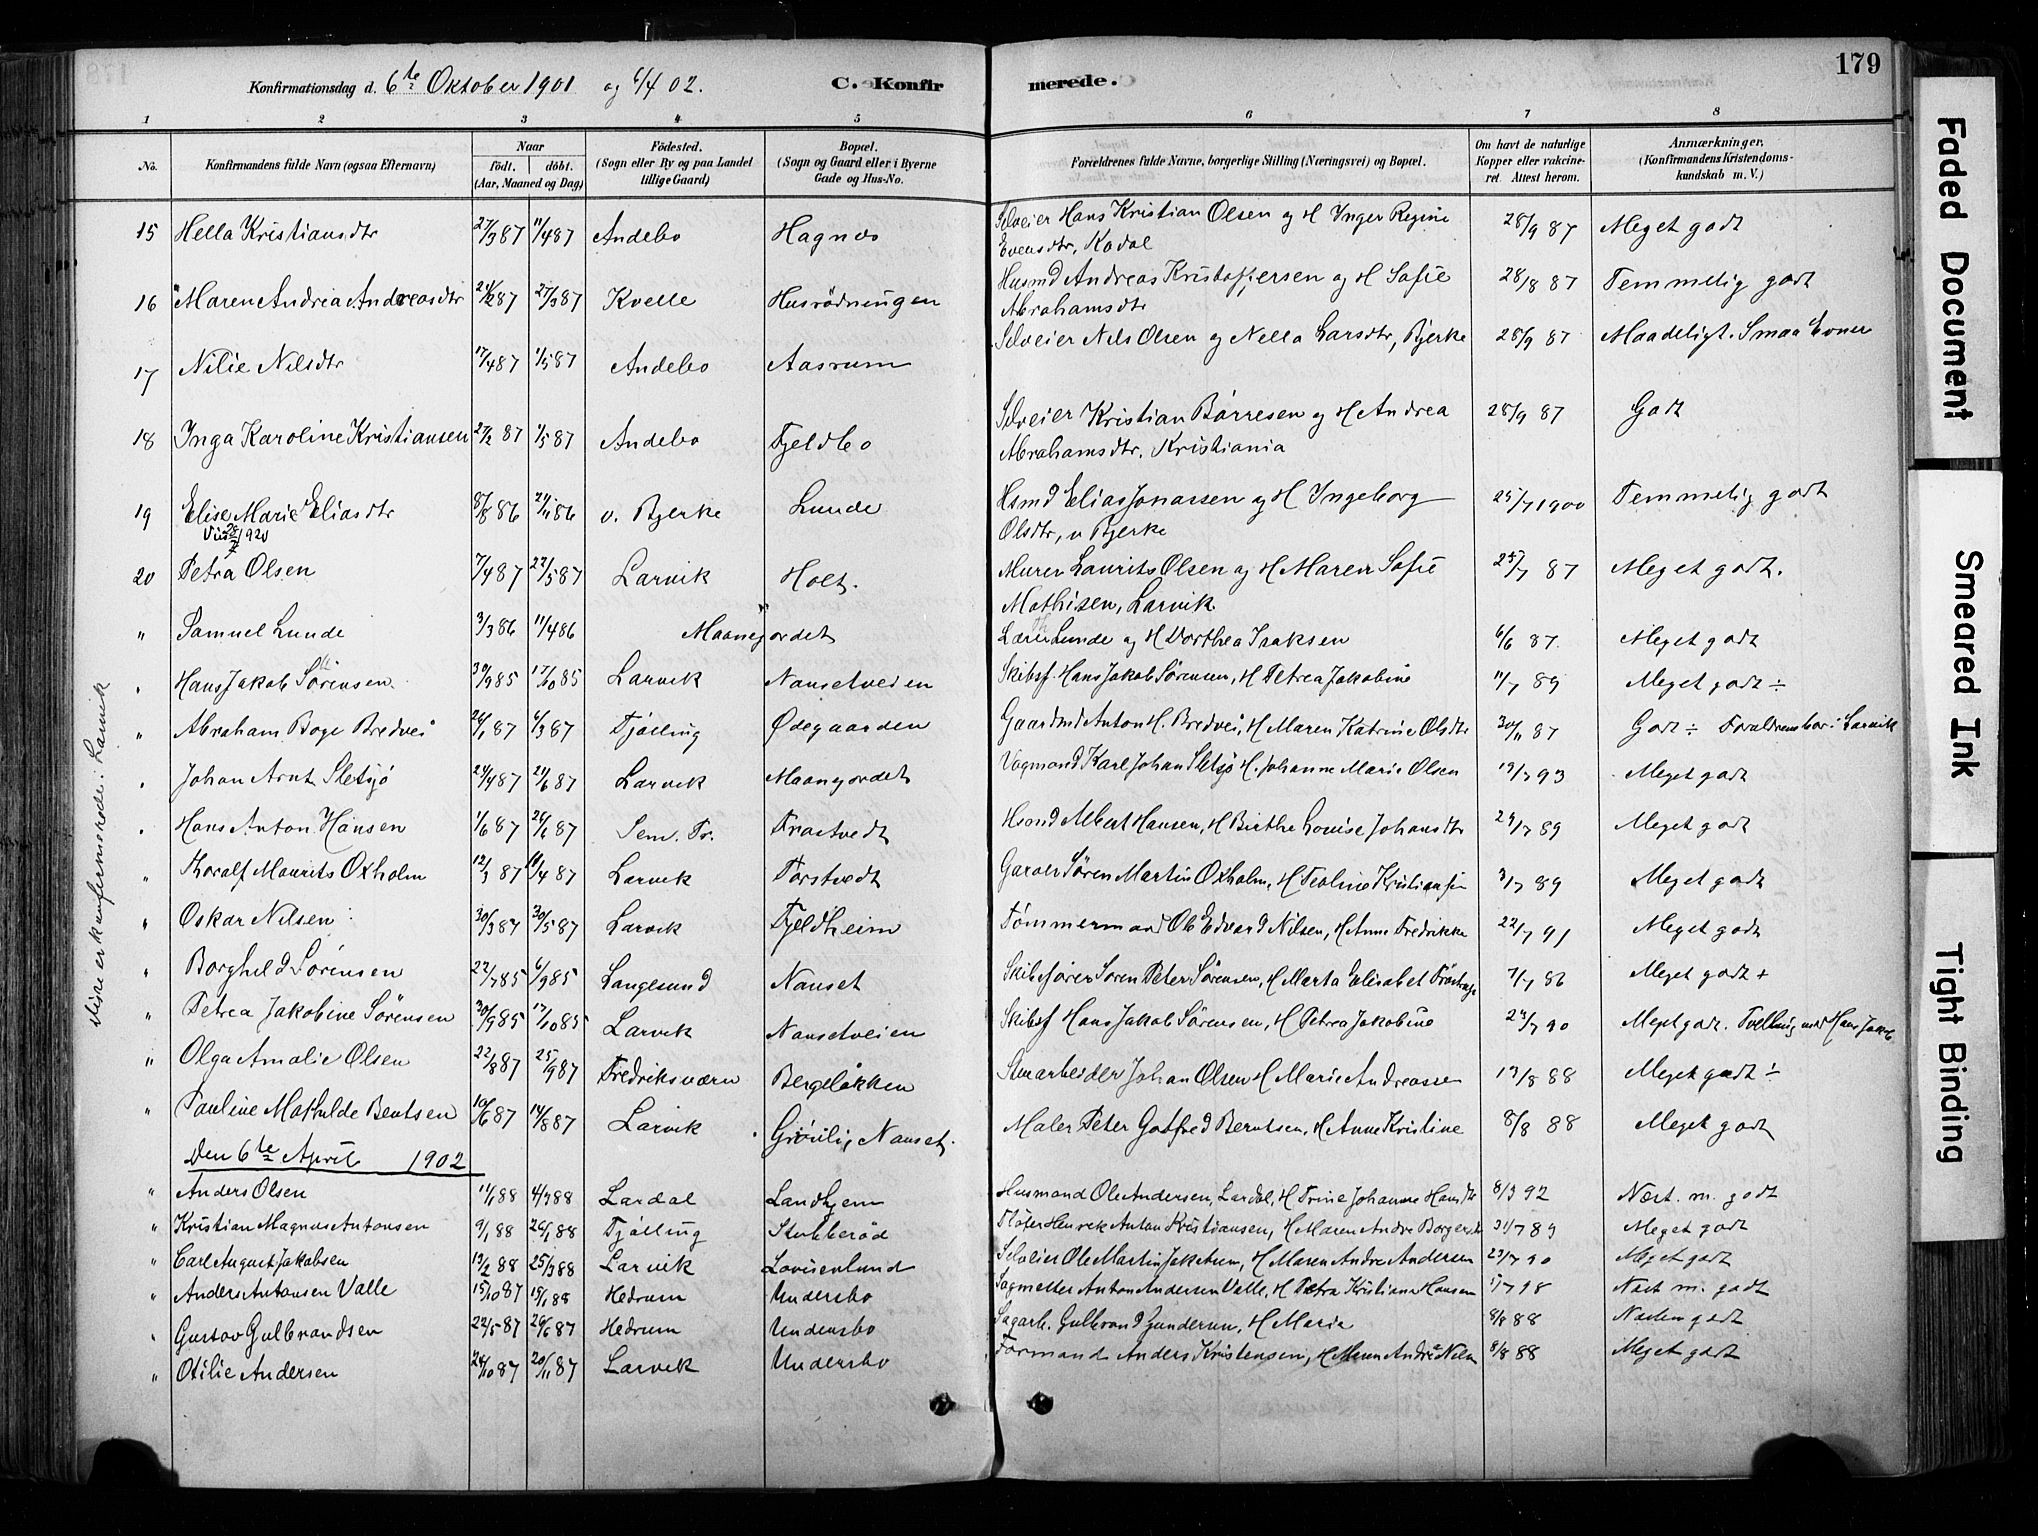 179
Konfirmationsdag d. 6te Oktober 1901 og 6/4 02. C. Konfirmerede.
1 2 3 4 5 6 7 8
No. Konfirmandens fulde Navn (ogsaa Efternavn) Naar født. døbt. (Aar, Maaned og Dag) Fødested. (Sogn eller By og paa Landet tillige Gaard) Bopæl. (Sogn og Gaard eller i Byerne Gade og Hus-No. Forældrenes fulde Navne, borgerlige Stilling (Næringsvei) og Bopæl. Om havt de naturlige Kopper eller vakcineret. Attest herom. Anmærkninger. (Konfirmandens Kristendomskundskab m. V.)
15 Hella Kristiansdtr 27/3 87 11/4 87 Andebo Hagnæs Selveier Hans Kristian Olsen og H Inger Regine 28/9 87 Meget godt
Evensdtr, Kodal
16 Maren Andrea Andreasdtr 27/3 87 Kvelle Husrødningen Husmd Andreas Kristoffersen og H Sofie 28/8 87 Temmelig godt
Abrahamsdtr
17 Nilie Nilsdtr 17/4 87 1/5 87 Andebo Aasrum Selveier Nils Olsen og Nella Larsdtr, Bjerke 28/9 87 Maadeligt. Smaa Evner
18 Inga Karoline Kristiansen 27/2 87 1/5 87 Andebo Fjeldbo Selveier Kristian Børresen og H Andrea 28/9 87 Godt
Abrahamsdtr. Kristiania
19 Elise Marie Eliasdtr 8/8 86 21/11 86 v. Bjerke Lunde Hsmd Elias Jonassen og H Ingeborg 25/7 1900 Temmelig godt
1920 Olsdtr, v Bjerke
20 Petra Olsen 7/4 87 22/5 87 Larvik Holt. Murer Laurits Olsen og H Maren Sofie 25/7 87 Meget godt.
Mathisen, Larvik
" Samuel Lunde 3/3 86 11/4 86 Maanejordet Lærer Lunde og H Dorthea Isaksen 6/6 87. Meget godt
" Hans Jakob Sørensen 30/9 85 17/10 85 Larvik Nansetveien Skibsf. Hans Jakob Sørensen, H Petrea Jakobine 11/7 89 Meget godt ÷
" Abraham Boye Bredvei 6/3 87 Tjølling Ødegaarden Gaardmd Anton H. Bredvei, H Maren Katrine Olsdtr 30/11 87 Godt ÷ Forældrene bor i Larvik
" Johan Arnt Sletsjø 24/4 87 21/6 87 Larvik Maanejordet Vogmand Karl Johan Sletsjø H. Johanne Marie Olsen 19/7 93 Meget godt
" Hans Anton Hansen 1/6 87 26/6 87 Sem. Tr. Frostvedt Hsmd Albert Hansen, H Birthe Lovise Johansdtr 29/7 89 Meget godt
" Thoralf Maurits Oxholm 12/3 87 11/4 87 Larvik Torstvedt Garver Søren Martin Oxholm, H Teoline Kristiansen 3/7 89 Meget godt
" Oskar Nilsen 30/3 87 30/5 87 Larvik Fjeldheim Tømmermand Ole Edvard Nilsen, H Anne Fredrikke 22/7 91 Meget godt
" Borghild Sørensen 22/7 85 6/9 85 Langesund Nanset Skibsfører Søren Peter Sørensen, H Marta Elisabet 7/7 86 Meget godt +
" Petrea Jakobine Sørensen 30/9 85 17/10 85 Larvik Nansetveien Skibsf Hans Jakob Sørensen, H Petrea Jakobine 25/7 90 Meget godt. Tvelling med Hans Jakob
" Olga Amalie Olsen 22/8 87 25/9 87 Fredriksværn Bergeløkken Stuarbeider Johan Olsen H Marie Andreassen 13/8 88 Meget godt ÷
" Pauline Mathilde Bentsen 10/6 87 14/8 87 Larvik Grønli, Nanset. Maler Peter Gotfred Berntsen, H Anne Kristine 8/8 88 Meget godt
Den 6te April 1902
" Anders Olsen 11/1 88 4/3 88 Lardal Landhjem Husmand Ole Andersen, Lardal, H Trine Johanne Hansdtr 8/3 92 Næst. m. godt
" Kristian Magnus Antonsen 9/1 88 26/1 88 Tjølling Stubberød Fløter Henrik Anton Kristiansen, H Maren Andrea 31/7 89 Meget godt
" Carl August Jakobsen 13/2 88 25/3 88 Larvik Lovisenlund Selveier Ole Martin Jakobsen, H Maren Andrea Andersen 23/7 90 Meget godt
" Anders Antonsen Valle 15/10 87 15/1 88 Hedrum Undersbo Sagmester Anton Andersen Valle, H Petra Kristiana Hansen 98 Næst m. godt
" Gustav Gulbrandsen 22/5 87 26/6 87 Hedrum Undersbo Sagarb. Gulbrand Gundersen, H Maria 8/8 88 Næsten godt
" Otilie Andersen 24/10 87 20/11 87 Larvik Undersbo Formand Anders Kristensen, H Maren Andrea Nilsen 8/8 88 Meget godt
Disse er konfirmerede i Larvik
Faded Document
Smeared Ink
Tight Binding